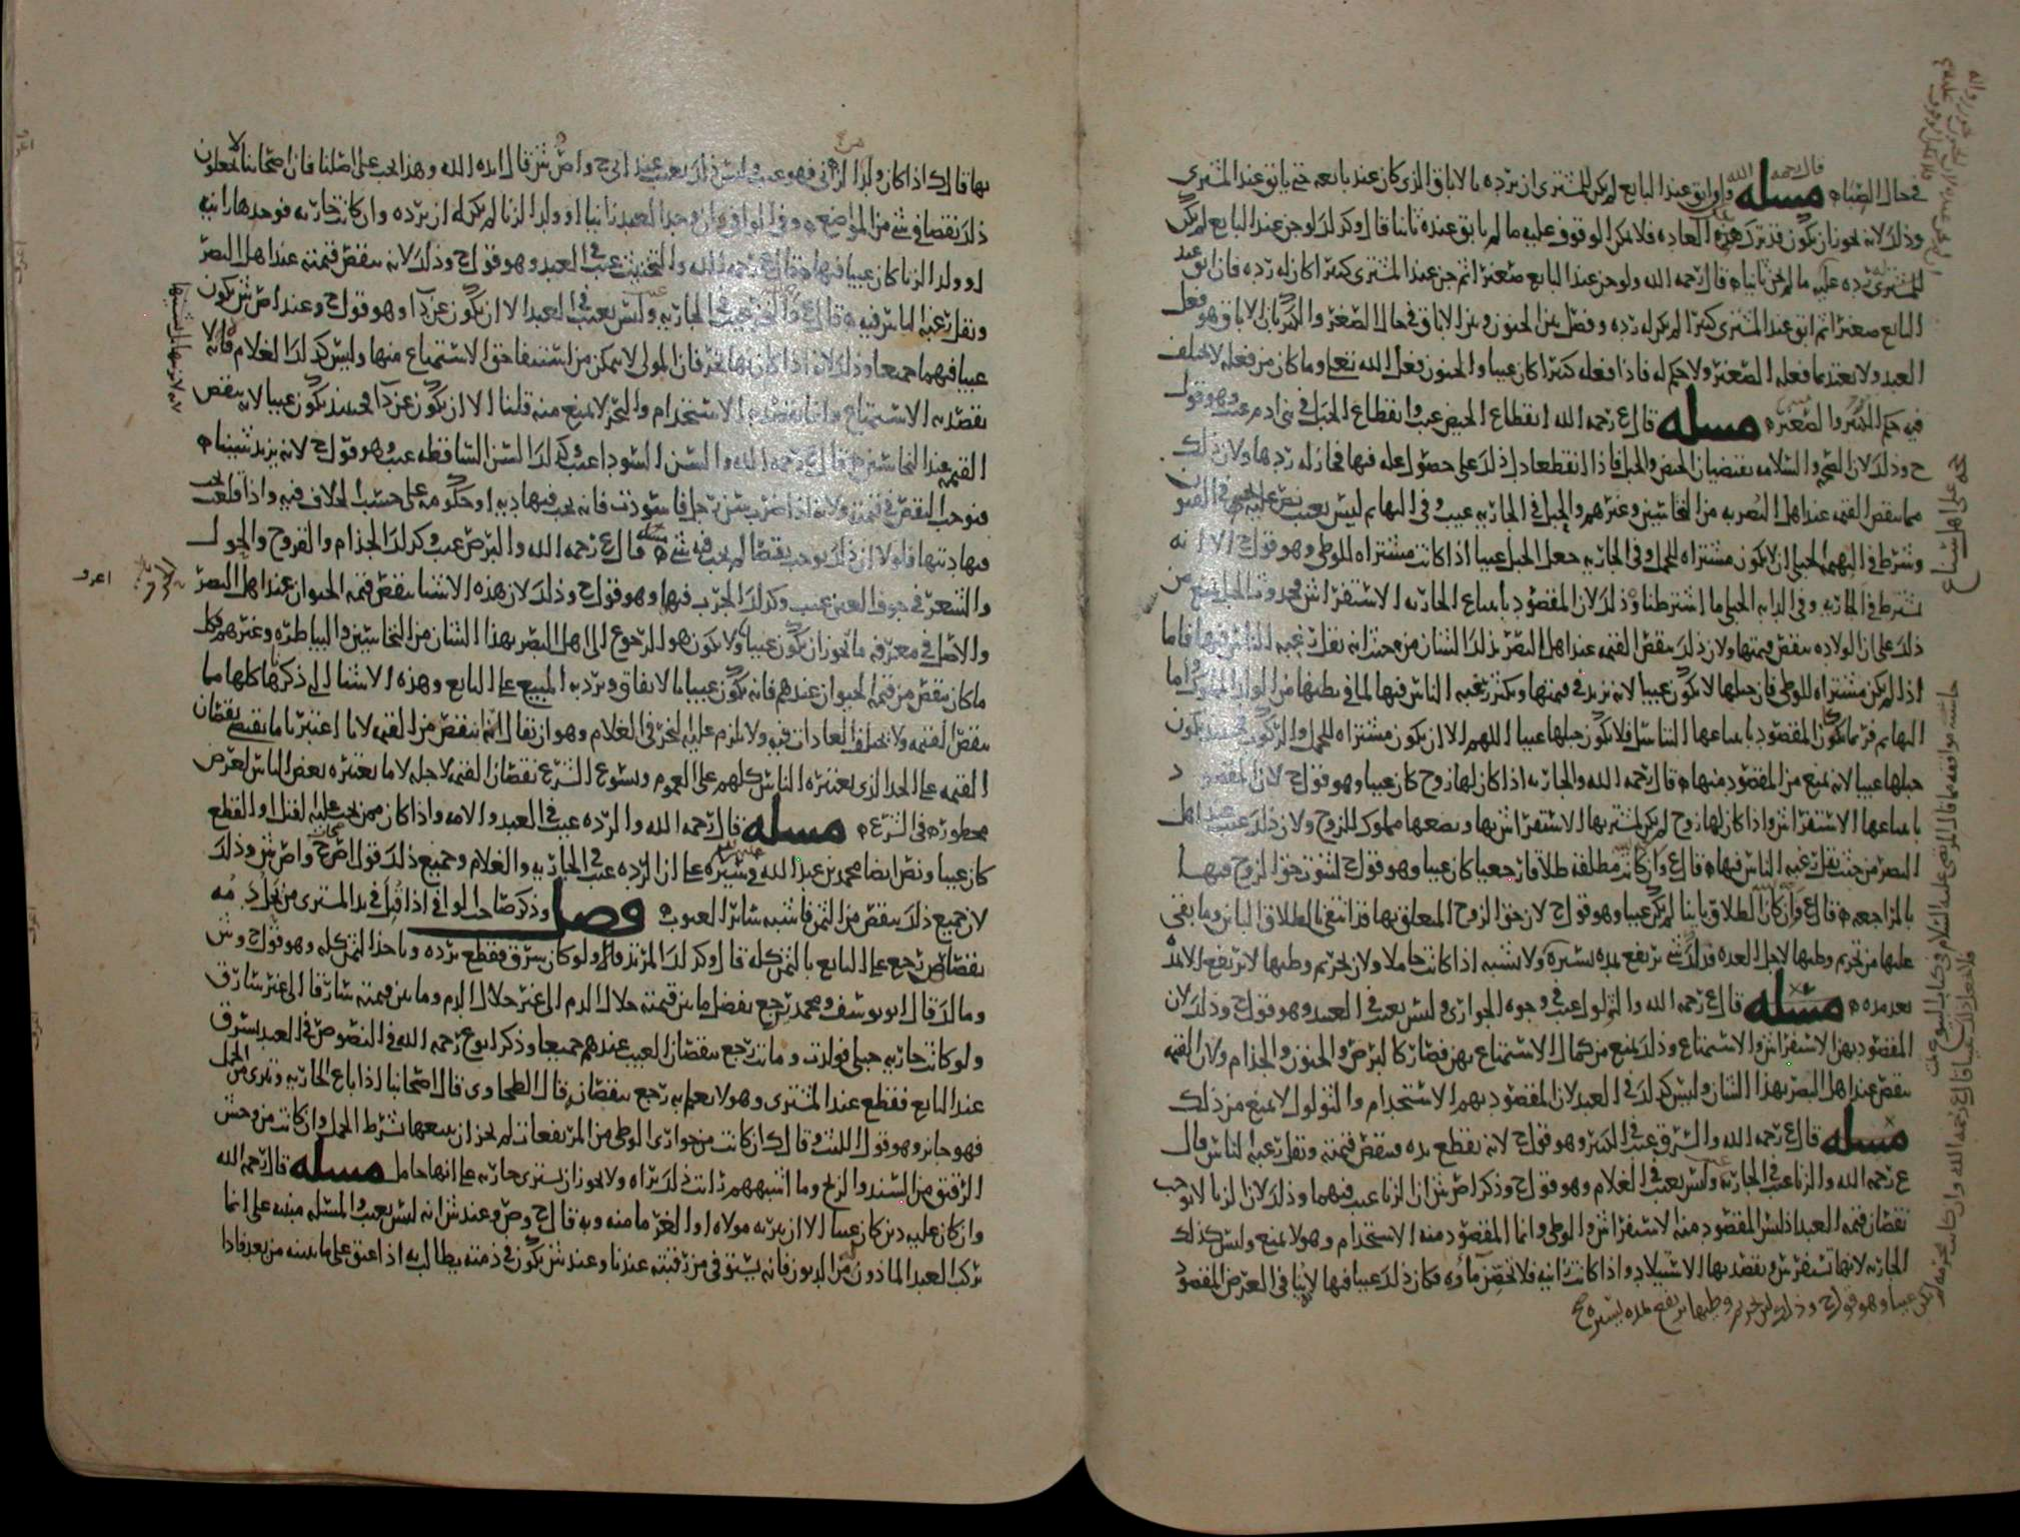 في حال الصباه مسله قال رحمه الله وان ابق عند البايع لم يكن للمشتري ان يرده بالاباق الذي كان عند بايعه حتى يابق عند المشتري
وذلك لانه يجوز ان يكون قد ترك هذه العاده فلا يمكن الوقوف عليه ما لم يابق عنده ثانيا قال وكذلك لو جن عند البايع لم يكن
للمشتري رده عليه ما لم يجن ثانيا قال رحمه الله ولو جن عند البايع صغيرا ثم جن عند المشتري كبيرا كان له رده فان ابق عند
البايع صغيرا ثم ابق عند المشتري كبيرا لم يكن له رده وفصل بين الجنون وبين الاباق في حال الصغر والكبر بان الاباق هو فعل
العبد ولا يعتد بما فعله الصغير ولا حكم له فاذا فعله كبيرا كان عيبا والجنون فعل الله تعالى وما كان من فعله لا يختلف
فيه حكم الكبير والصغير مسله قال ع رحمه الله انقطاع الحيض عيب وانقطاع الحبل في بني ادم عيب وهو قول
ح وذلك لان الصحه والسلامه يقتضيان الحيض والحبل فاذا انقطعا دل ذلك على حصول عله فيها فجاز له ردها ولان ذلك
مما ينقص القيمه عند اهل البصر به من النخاسين وغيرهم والحبل في الجاريه عيب وفي البهايم ليس بعيب نص عليه يحيى في الفنون
وشرط في البهيمه الحبلى ان لا يكون مشتراه للحمل وفي الجاريه جعل الحبل عيبا اذا كانت مشتراه للوطي وهو قول ح الا انه
لم يشترط في الجاريه وفي الدابه الحبلى ما اشترطنا وذلك لان المقصود بابتياع الجاريه الاستفراش فحدوث الحبل يمنع من
ذلك على ان الولاده ينقص قيمتها ولان ذلك ينقص القيمه عند اهل البصر بذلك الشان من حيث انه يقل رغبه الناس فيها فاما
اذا لم يكن مشتراه للوطي فان حبلها لا يكون عيبا لانه يزيد في قيمتها ويكثر رغبه الناس فيها لما في بطنها من الولد المملوك واما
البهايم فربما يكون المقصود بابتياعها التناسل فلا يكون حبلها عيبا اللهم الا ان يكون مشتراه للحمل والركوب فحينئذ يكون
حبلها عيبا لانه يمنع من المقصود منها قال رحمه الله والجاريه اذا كان لها زوج كان عيبا وهو قول ح لان المقصود
بابتياعها الاستفراش واذا كان لها زوج لم يكن لمشتريها الاستفراش بها وبضعها مملوك للزوج ولان ذلك عيب عند اهل
البصر من حيث يقل رغبه الناس فيها قال ع وان كانت مطلقه طلاقا رجعيا كان عيبا وهو قول ح لثبوت حق الزوج فيها
بالمراجعه قال ع وان كان الطلاق باينا لم يكن عيبا وهو قول ح لان حق الزوج المعلق بها قد انتفى بالطلاق الباين وما بقي
عليها من تحريم وطيها لاجل العده فذلك شي يرتفع لمده يسيره ولا يشبه اذا كانت حاملا ولان تحريم وطيها لا يرتفع الا
بعد مده مسله قال ع رحمه الله والثولول عيب في وجوه الجواري وليس بعيب في العبد وهو قول ح وذلك لان
المقصود بهن الاستفراش والاستمتاع وذلك يمنع من كمال الاستمتاع بهن فصار كالبرص والجنون والجذام ولان القيمه
تنقص عند اهل البصر بهذا الشان وليس كذلك في العبد لان المقصود بهم الاستخدام والثولول لا يمنع من ذلك
مسله قال ع رحمه الله والسرق عيب في الكبير وهو قول ح لانه يقطع يده فينقص قيمته ويقل رغبه الناس قال
ع رحمه الله والزنا عيب في الجاريه وليس بعيب في الغلام وهو قول ح وذكر اص ش ان الزنا عيب فيهما وذلك لان الزنا لا يوجب
نقصان قيمه العبد اذ ليس المقصود منه الاستفراش والوطي وانما المقصود منه الاستخدام وهو لا يمنع وليس كذلك
الجاريه لانها تستفرش ويقصد بها الاستيلاد واذا كانت زانيه فلا تحصن ماؤه فكان ذلك عيبا فيها لانه ينافي الغرض المقصود
بها قال ك اذا كان ولدا لزنى فهو عيب وليس ذلك بعيب عند اى ح واص ش قال ايده الله وهذا يجب على اصلنا فان اصحابنا لا يجعلون
ذلك نقصا في شي من المواضع وفي الوافي وان وجد العبد زانيا او ولد الزنا لم يكن له ان يرده وان كانت جاريه فوجدها زانيه
او ولد الزنا كان عيبا فيها قال ع رحمه الله والتخنيث عيب في العبد وهو قول ح وذلك لانه ينقص قيمته عند اهل البصر
وتقل رغبه الناس فيه قال ع والبخر عيب في الجاريه وليس بعيب في العبد الا ان يكون عن داء وهو قول ح وعند اص ش يكون
عيبا فيهما جميعا وذلك لانه اذا كان بها بخر فان المولى لا يتمكن من استيفا حق الاستمتاع منها وليس كذلك الغلام فانه لا
يقصد به الاستمتاع وانما يقصد به الاستخدام والبخر لا يمنع منه قلنا الا ان يكون عن داء فحينئذ يكون عيبا لانه ينقص
القيمه عند النخاسين قال ع رحمه الله والسن السودا عيب وكذلك السن الساقطه عيب وهو قول ح لانه يزيد شينا
فيوجب النقص في قيمته ولانه اذا ضرب سن رجل فاسودت فانه يجب فيها ديه او حكومه على حسب الخلاف فيه واذا قلعت يجب
فيها ديتها فلولا ان ذلك يوجب نقصا لم يجب فيه شي مسله قال ع رحمه الله والبرص عيب وكذلك الجذام والقروح والحول
والشعر في جوف العين عيب وكذلك الجرب فيها وهو قول ح وذلك لان هذه الاشيا ينقص قيمه الحيوان عند اهل البصر
والاصل في معرفه ما يجوز ان يكون عيبا ولا يكون هو الرجوع الى اهل البصر بهذا الشان من النخاسين والبياطره وغيرهم فكل
ما كان ينقص من قيمه الحيوان عندهم فانه يكون عيبا بالاتفاق ويرد به المبيع على البايع وهذه الاشيا التي ذكرها كلها مما
ينقص القيمه ولا يختلف العادات فيه ولا يلزم عليه البخر في الغلام وهو ان يقال انما ينقص من القيمه لانا اعتبرنا ما يقتضي نقصان
القيمه على الحد الذي يعتبره الناس كلهم على العموم ويسوغ الشرع نقصان القيمه لاجله لا ما يعتبره بعض الناس لغرض
محظور في الشرع مسله قال رحمه الله والرده عيب في العبد والامه واذا كان ممن يجب عليه القتل او القطع
كان عيبا ونص ايضا محمد بن عبد الله في سيره على ان الرده عيب في الجاريه والغلام وجميع ذلك قول اص ح واص ش وذلك
لان جميع ذلك ينقص من الثمن فاشبه سائر العيوب فصل وذكر صاحب الوافي اذا قتل في يد المشتري من
بقصاص رجع على البايع بالثمن كله قال وكذلك المرتد قال ولو كان سرق فقطع يرده وياخذ الثمن كله وهو قول ح وش
وما لك قال ابو يوسف ومحمد يرجع بفضل ما بين قيمته حلال الدم الى غير حلال الدم وما بين قيمته سارقا الى غير سارق
ولو كانت جاريه حبلى فولدت وماتت رجع بنقصان العيب عندهم جميعا وذكر ابو ع رحمه الله في النصوص في العبد يسرق
عند البايع فقطع عند المشتري وهو لا يعلم به رجع بنقصان قال الطحاوي قال اصحابنا اذا باع الجاريه وتبرى من الحمل
فهو جائز وهو قول الليث وقال ك ان كانت من جواري الوطي من المرتفعات لم يجز ان يبيعها بشرط الحمل وان كانت من وحش
الرقيق من السند والزنج وما اشبههم رايت ذلك براه ولا يجوز ان يشتري جاريه على انها حامل مسله قال رحمه الله
وان كان عليه دين كان عيبا الا ان يبريه مولاه او الغرما منه وبه قال ح وص وعند ش انه ليس بعيب والمسله مبنيه على انما
يركب العبد الماذون من الديون فانه يستوفى من رقبته عندنا وعند ش يكون في ذمته يطالب به اذا اعتق على ما نبينه من بعد فاذا